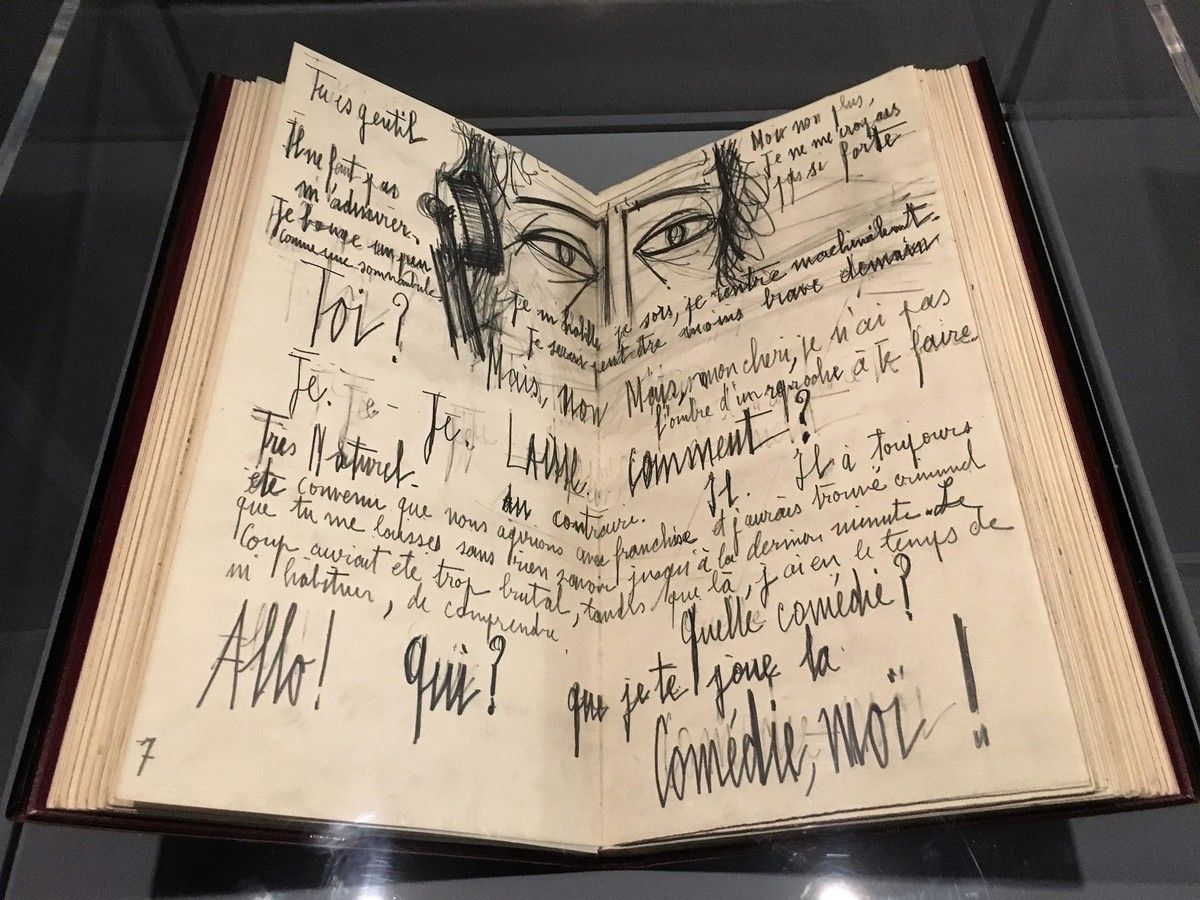 Tu es gentil
Il ne faut pas
m'admirer.
Je bouge un peu
comme une somnambule
Moi non plus,
Je ne me croyais
pas si forte
Je m'habille, je sors, je rentre machinalement.
Je serai peut être moins brave demain
Toi?
Mais, non Mais, mon cheri, je n'ai pas
l'ombre d'un reproche à te faire.
Je. Je - Je. Laisse. comment?
Très Naturel. Au contraire. Il. Il à toujours
été convenu que nous agirions avec franchise et j'aurais trouvé criminel
que tu me laisses sans rien savoir jusqu'à la dernière minute. Le
Coup aurait été trop brutal, tandis que là, j'ai eu le temps de
m'habituer, de comprendre.
Quelle comédie?
Allo! qui? que je te joue la
Comédie, moï !
7